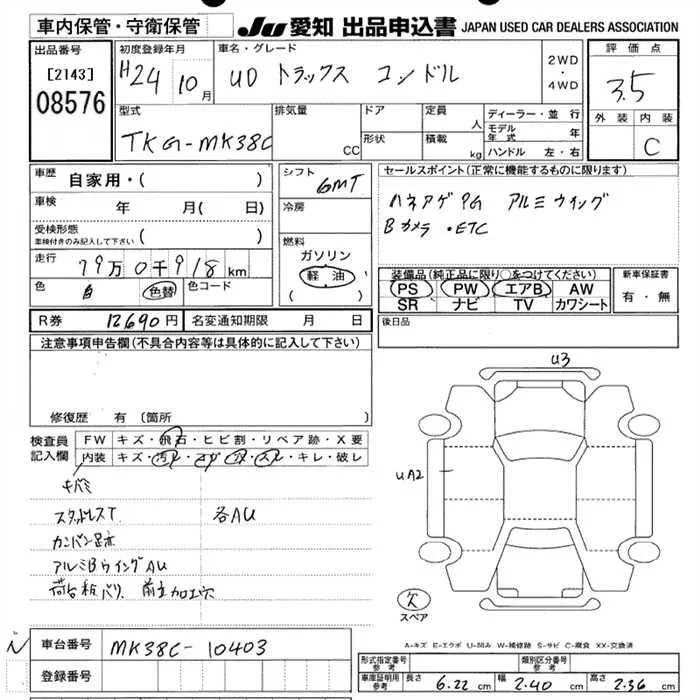 車内保管・守衛保管 JU 愛知 出品申込書 JAPAN USED CAR DEALERS ASSOCIATION
出品番号 [2143] 08576
初度登録年月 H24 10月
車名・グレード UD トラックス コンドル
2WD・4WD
評価点 3.5
外装 内装 C
型式 TKG-MK38C
排気量 CC
ドア 形状
定員 人 積載 kg
ディーラー・並行
モデル年式 年
ハンドル 左・右
車歴 自家用・( )
車検 年 月( 日)
受検形態 車検付きのみ記入して下さい ( )
走行 79万0千918km
色 白 色替 色コード
シフト 6MT
冷房
燃料 ガソリン 軽油 ( )
セールスポイント(正常に機能するものに限ります)
ハネアゲPG アルミウイング
Bカメラ・ETC
装備品(純正品に限り○をつけてください)
PS PW エアB AW
SR ナビ TV カワシート
新車保証書 有・無
R券 12690円 名変通知期限 月 日
後日品
注意事項申告欄(不具合内容等は具体的に記入して下さい)
修復歴 有(箇所
検査員記入欄
FW キズ・飛石・ヒビ割・リペア跡・X要
内装 キズ・汚レ・コゲ・穴・スレ・キレ・破レ
キバミ
スタッドレスT 各AU
カンバン跡
アルミBウイングAU
荷台板バリ 前立加工穴
U3
UA2
欠
スペア
A-キズ E-エクボ U-凹み W-補修跡 S-サビ C-腐食 XX-交換済
車台番号 MK38C-10403
登録番号
形式指定番号 参考
類別区分番号 参考
車庫証明用参考 長さ 6.22cm 幅 2.40cm 高さ 2.36cm